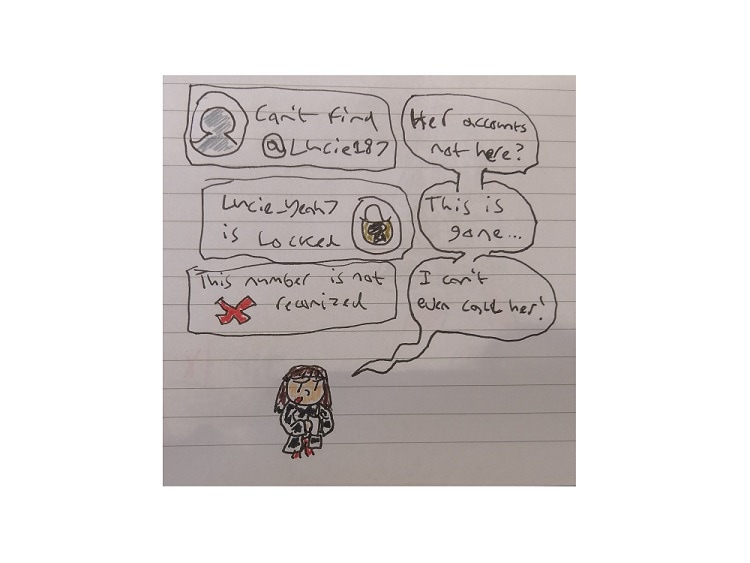 Can't Find
@Lucie187
Her accounts
not here?
Lucie_Yeah7
is Locked
This is
gone...
This number is not
reconized
I can't
even call her!